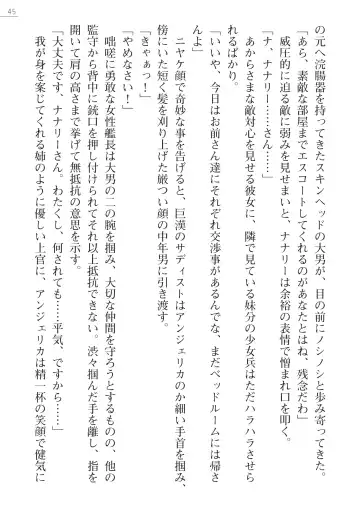 45
の元へ浣腸器を持ってきたスキンヘッドの大男が、目の前にノシノシと歩み寄ってきた。
「あら、素敵な部屋までエスコートしてくれるのがあなたとはね、残念だわ」
威圧的に迫る敵に弱みを見せまいと、ナナリーは余裕の表情で憎まれ口を叩く。
「ナ、ナナリー……さん……」
あからさまな敵対心を見せる彼女に、隣で見ている妹分の少女兵はただハラハラさせら
れるばかり。
「いいや、今日はお前さん達にそれぞれ交渉事があるんでな、まだベッドルームには帰さ
んよ」
ニヤケ顔で奇妙な事を告げると、巨漢のサディストはアンジェリカのか細い手首を掴み、
傍にいた短く髪を刈り上げた厳つい顔の中年男に引き渡す。
「きゃぁっ！」
「やめなさい！」
咄嗟に勇敢な女性艦長は大男の二の腕を掴み、大切な仲間を守ろうとするものの、他の
監守から背中に銃口を押し付けられてそれ以上抵抗できない。渋々掴んだ手を離し、指を
開いて肩の高さまで挙げて無抵抗の意思を示す。
「大丈夫です、ナナリーさん。わたくし、何されても……平気、ですから……」
我が身を案じてくれる姉のように優しい上官に、アンジェリカは精一杯の笑顔で健気に